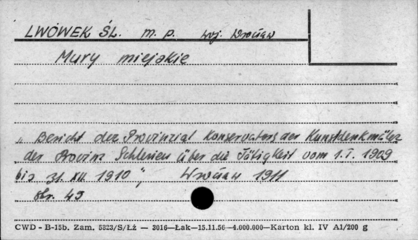 LWÓWEK ŚL. m. p. woj. Wrocław
Mury miejskie
„Bericht des Provinzial Konservators der Kunstdenkmäler
der Provinz Schlesien über die Tätigkeit vom 1.I. 1909
bis 31. XII. 1910", Wrocław 1911
str. 43
CWD - B-15b. Zam. 5823/S/Łż — 3016—Łak—15.11.56—4.000.000—Karton kl. IV A1/200 g